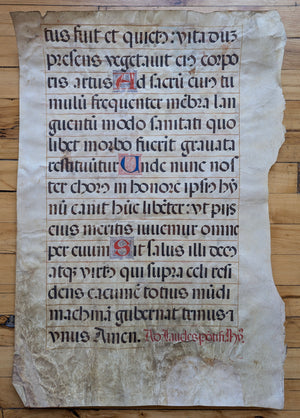 tus fuit et quietꝰ: vita dum̄
presens vegetauit eiꝰ corpo
ris artus. Ad sacrū cuiꝰ tu
mulū frequenter mēbra lan
guentū modo sanitati quo
libet morbo fuerit grauata
restituūtur Unde nunc nos
ter chorꝰ in honorē ipsiꝰ hȳ
nū canit hūc libēter: vt pijs
eius meritis iuuemur omne
per euum Sit salus illi decꝰ
atqꝫ virtꝰ qui supra celi resi
dens cacumē totius mūdi
machinā gubernat trinus ⁊
vnus Amen. Ad laudes pontifi. hȳ.